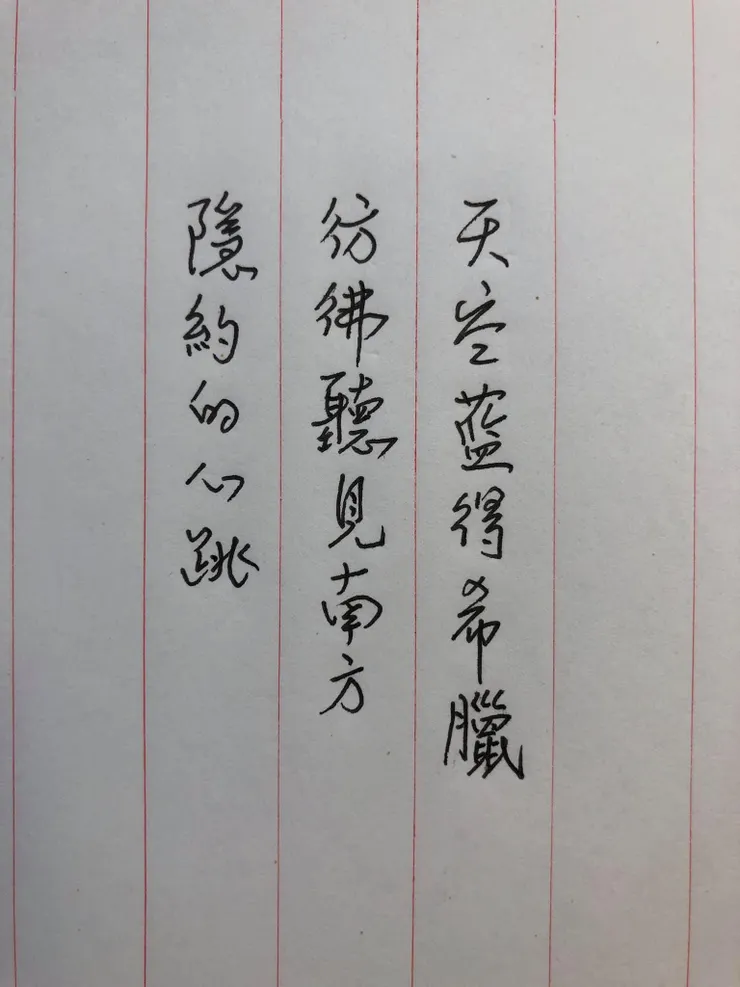 天空藍得希臘
彷彿聽見南方
隱約的心跳